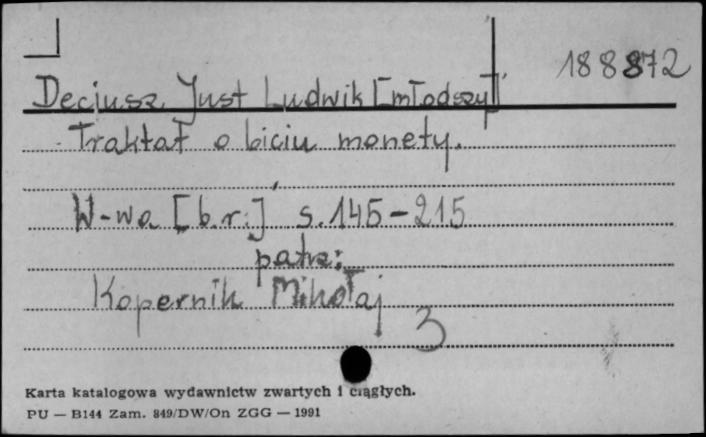 188872
Decjusz Just Ludwik [młodszy]
Traktat o biciu monety.
W-wa [b.r.] s. 145-215
patrz:
Kopernik Mikołaj
3
Karta katalogowa wydawnictw zwartych i ciągłych.
PU — B144 Zam. 849/DW/On ZGG — 1991